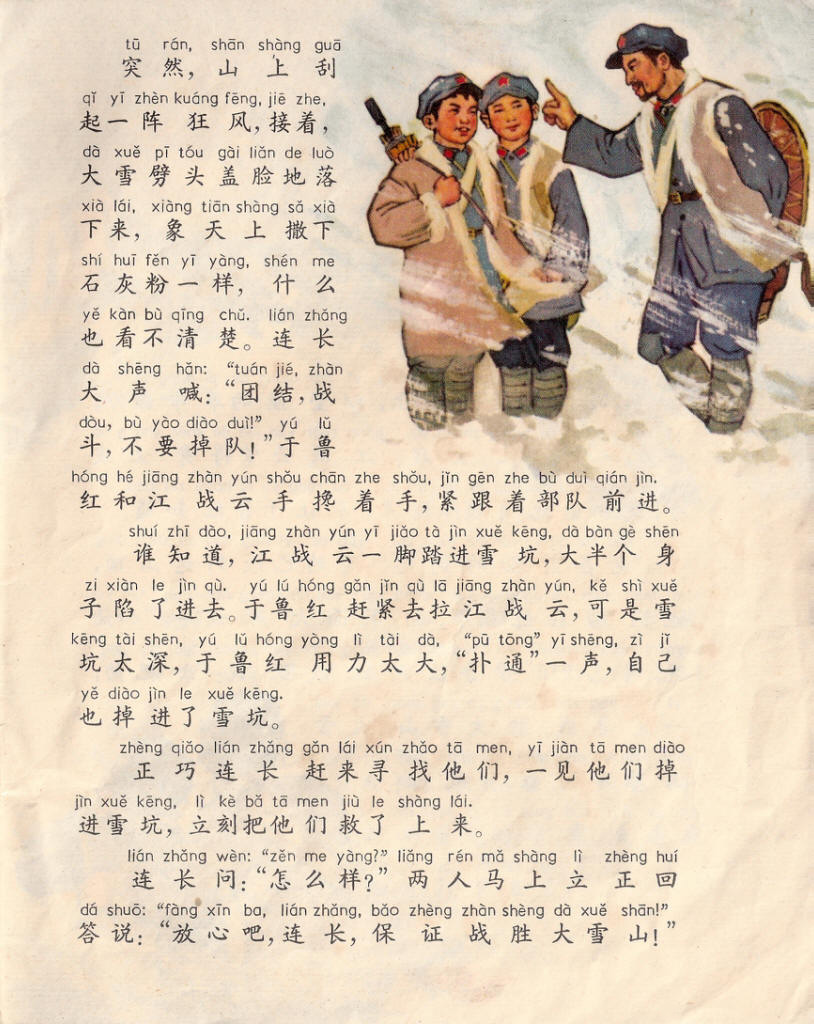 tū rán, shān shàng guā
突然，山上刮
qǐ yī zhèn kuáng fēng, jiē zhe,
起一阵狂风，接着，
dà xuě pī tóu gài liǎn de luò
大雪劈头盖脸地落
xià lái, xiàng tiān shàng sǎ xià
下来，象天上撒下
shí huī fěn yī yàng, shén me
石灰粉一样，什么
yě kàn bù qīng chǔ. lián zhǎng
也看不清楚。连长
dà shēng hǎn: “tuán jié, zhàn
大声喊：“团结，战
dòu, bù yào diào duì!” yú lǔ
斗，不要掉队！”于鲁
hóng hé jiāng zhàn yún shǒu chān zhe shǒu, jǐn gēn zhe bù duì qián jìn.
红和江战云手搀着手，紧跟着部队前进。
shuí zhī dào, jiāng zhàn yún yī jiǎo tà jìn xuě kēng, dà bàn gè shēn
谁知道，江战云一脚踏进雪坑，大半个身
zi xiàn le jìn qù. yú lú hóng gǎn jǐn qù lā jiāng zhàn yún, kě shì xuě
子陷了进去。于鲁红赶紧去拉江战云，可是雪
kēng tài shēn, yú lǔ hóng yòng lì tài dà, “pū tōng” yī shēng, zì jǐ
坑太深，于鲁红用力太大，“扑通”一声，自己
yě diào jìn le xuě kēng.
也掉进了雪坑。
zhèng qiǎo lián zhǎng gǎn lái xún zhǎo tā men, yī jiàn tā men diào
正巧连长赶来寻找他们，一见他们掉
jìn xuě kēng, lì kè bǎ tā men jiù le shàng lái.
进雪坑，立刻把他们救了上来。
lián zhǎng wèn: “zěn me yàng?” liǎng rén mǎ shàng lì zhèng huí
连长问：“怎么样？”两人马上立正回
dá shuō: “fàng xīn ba, lián zhǎng, bǎo zhèng zhàn shèng dà xuě shān!”
答说：“放心吧，连长，保证战胜大雪山！”